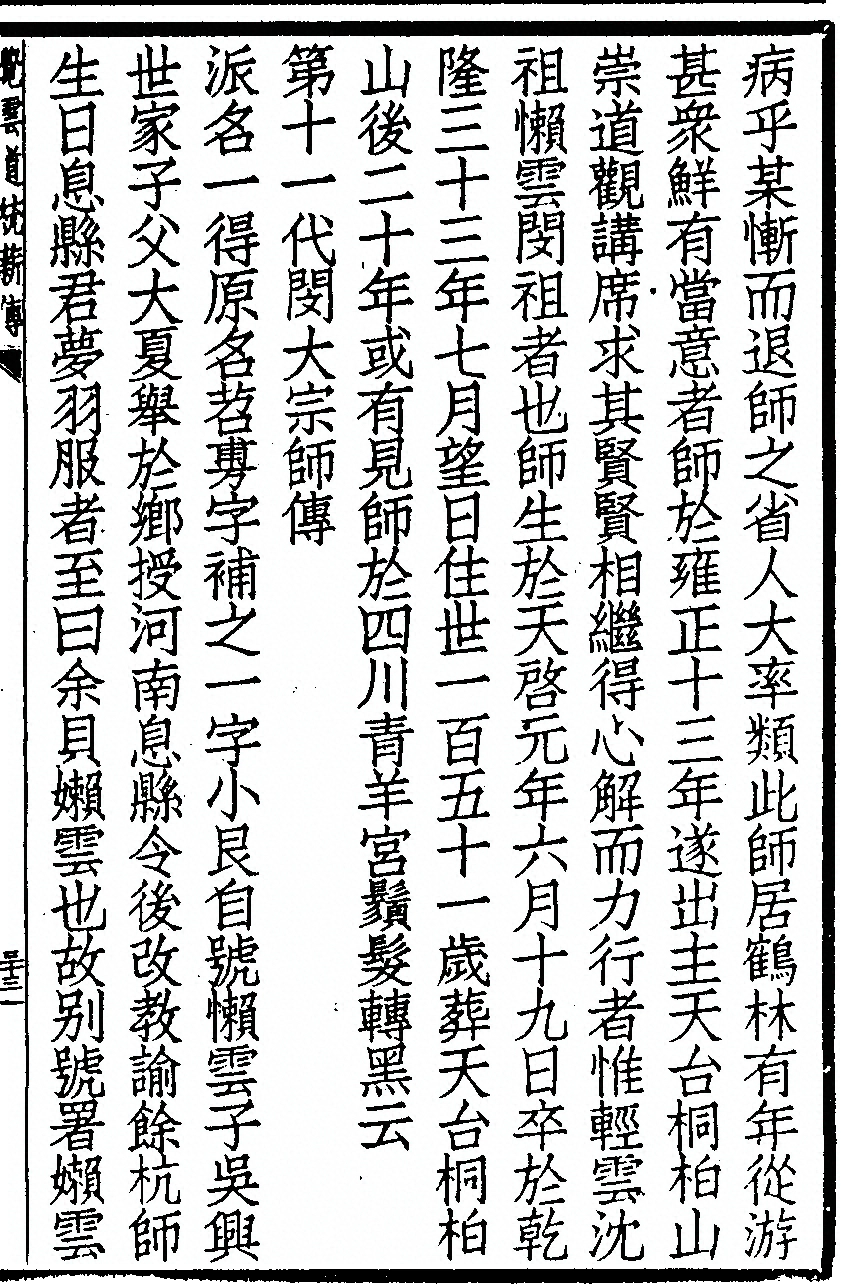 病乎某慚而退師之省人大率類此師居鶴林有年從游
甚衆鮮有當意者師於雍正十三年遂出主天台桐柏山
崇道觀講席求其賢賢相繼得心解而力行者惟輕雲沈
祖懶雲閔祖者也師生於天啓元年六月十九日卒於乾
隆三十三年七月望日住世一百五十一歲葬天台桐柏
山後二十年或有見師於四川青羊宮鬚髮轉黑云
第十一代閔大宗師傳
派名一得原名苕旉字補之一字小艮自號懶雲子吳興
世家子父大夏舉於鄉授河南息縣令後改教諭餘杭師
生日息縣君夢羽服者至曰余貝嬾雲也故別號署嬾雲
覺雲道統薪傳
二十三